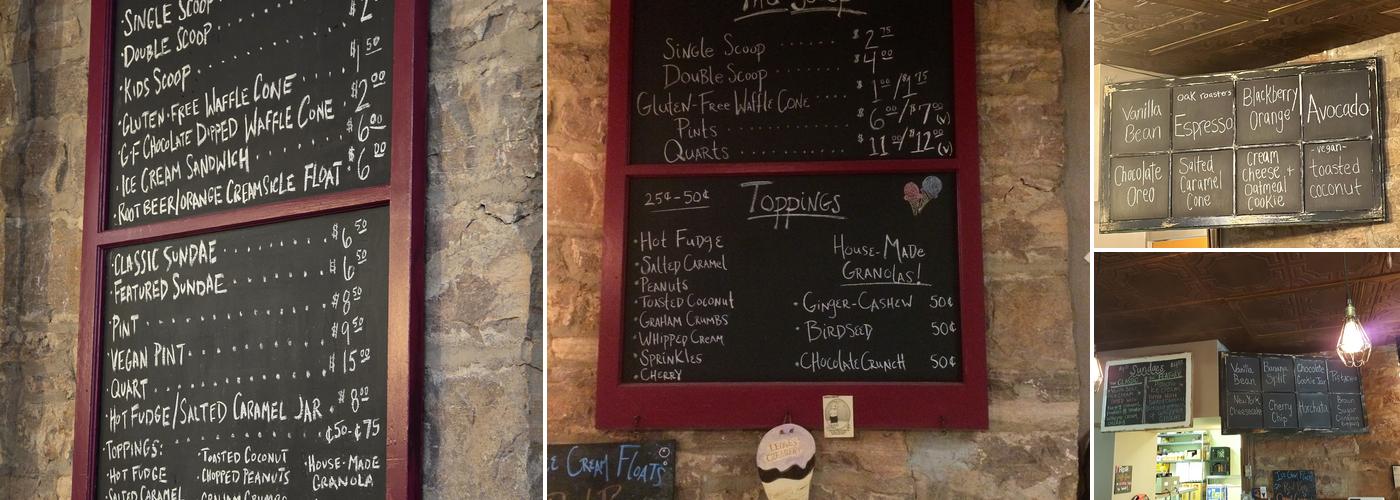 SINGLE SCOOP
DOUBLE SCOOP
KIDS SCOOP
GLUTEN-FREE WAFFLE CONE $1 50
G-F CHOCOLATE DIPPED WAFFLE CONE $2 00
ICE CREAM SANDWICH $6 00
ROOT BEER/ORANGE CREAMSICLE FLOAT $6 00
CLASSIC SUNDAE $6 50
FEATURED SUNDAE $6 50
PINT $8 50
VEGAN PINT $9 50
QUART $15 00
HOT FUDGE/SALTED CARAMEL JAR $8 00
TOPPINGS: ¢50-¢75
HOT FUDGE
SALTED CARAMEL
TOASTED COCONUT
CHOPPED PEANUTS
GRAHAM CRUMBS
HOUSE-MADE
GRANOLA
The Scoop
SINGLE SCOOP $2 75
DOUBLE SCOOP $4 00
GLUTEN-FREE WAFFLE CONE $1 00/$1 75
PINTS $6 00/$7 00 (V)
QUARTS $11 00/$12 00 (V)
25¢-50¢
TOPPINGS
HOT FUDGE
SALTED CARAMEL
PEANUTS
TOASTED COCONUT
GRAHAM CRUMBS
WHIPPED CREAM
SPRINKLES
CHERRY
HOUSE-MADE
GRANOLAS!
GINGER-CASHEW 50¢
BIRDSEED 50¢
CHOCOLATE CRUNCH 50¢
E CREAM FLOATS
Vanilla
Bean
oak roasters
Espresso
Blackberry
Orange
Avocado
Chocolate
Oreo
Salted
Caramel
Cone
Cream
cheese, +
oatmeal
cookie
-vegan-
toasted
coconut
Sundaes
Vanilla
Bean
Banana
Split
Chocolate
Cookie Jar
Pistachio
New York
Cheesecake
Cherry
Chip
Horchata
Brown
Sugar